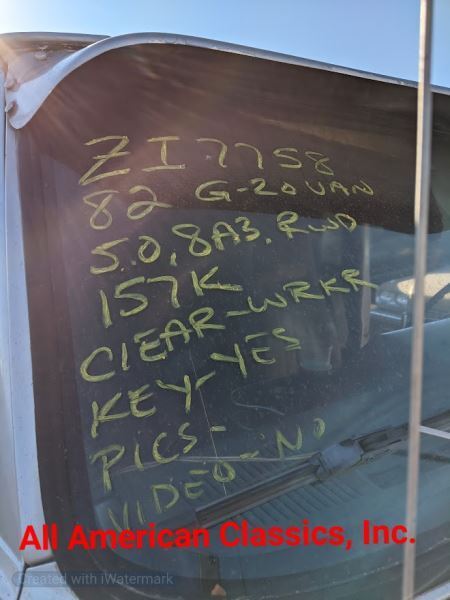 ZI7758
82 G-20 VAN
5.0, 8A3. RWD
157K
CLEAR-WRKR
KEY-YES
PICS-
VIDEO-NO
All American Classics, Inc.
Created with iWatermark